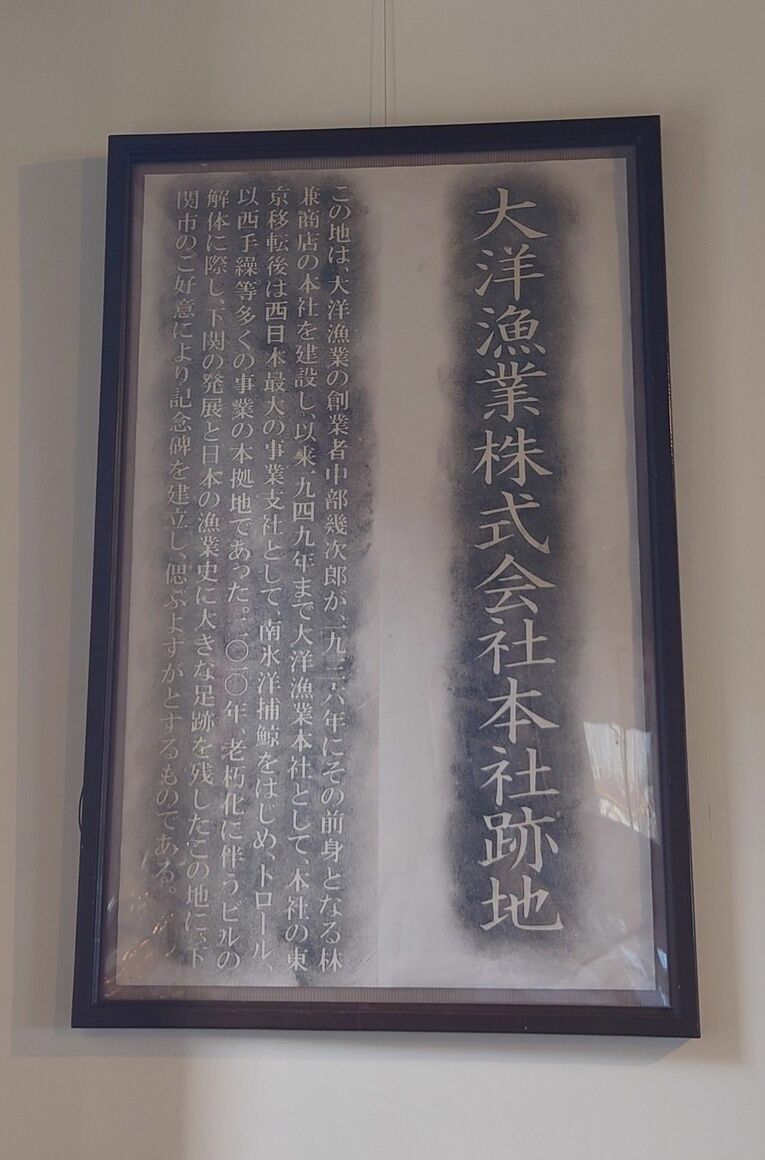 大洋漁業株式会社本社跡地
この地は、大洋漁業の創業者中部幾次郎が、一九三六年にその前身となる林
兼商店の本社を建設し、以来一九四九年まで大洋漁業本社として、本社の東
京移転後は西日本最大の事業支社として、南氷洋捕鯨をはじめ、トロール、
以西手繰等多くの事業の本拠地であった。二〇一〇年、老朽化に伴うビルの
解体に際し、下関の発展と日本の漁業史に大きな足跡を残したこの地に、下
関市のご好意により記念碑を建立し、偲ぶよすがとするものである。